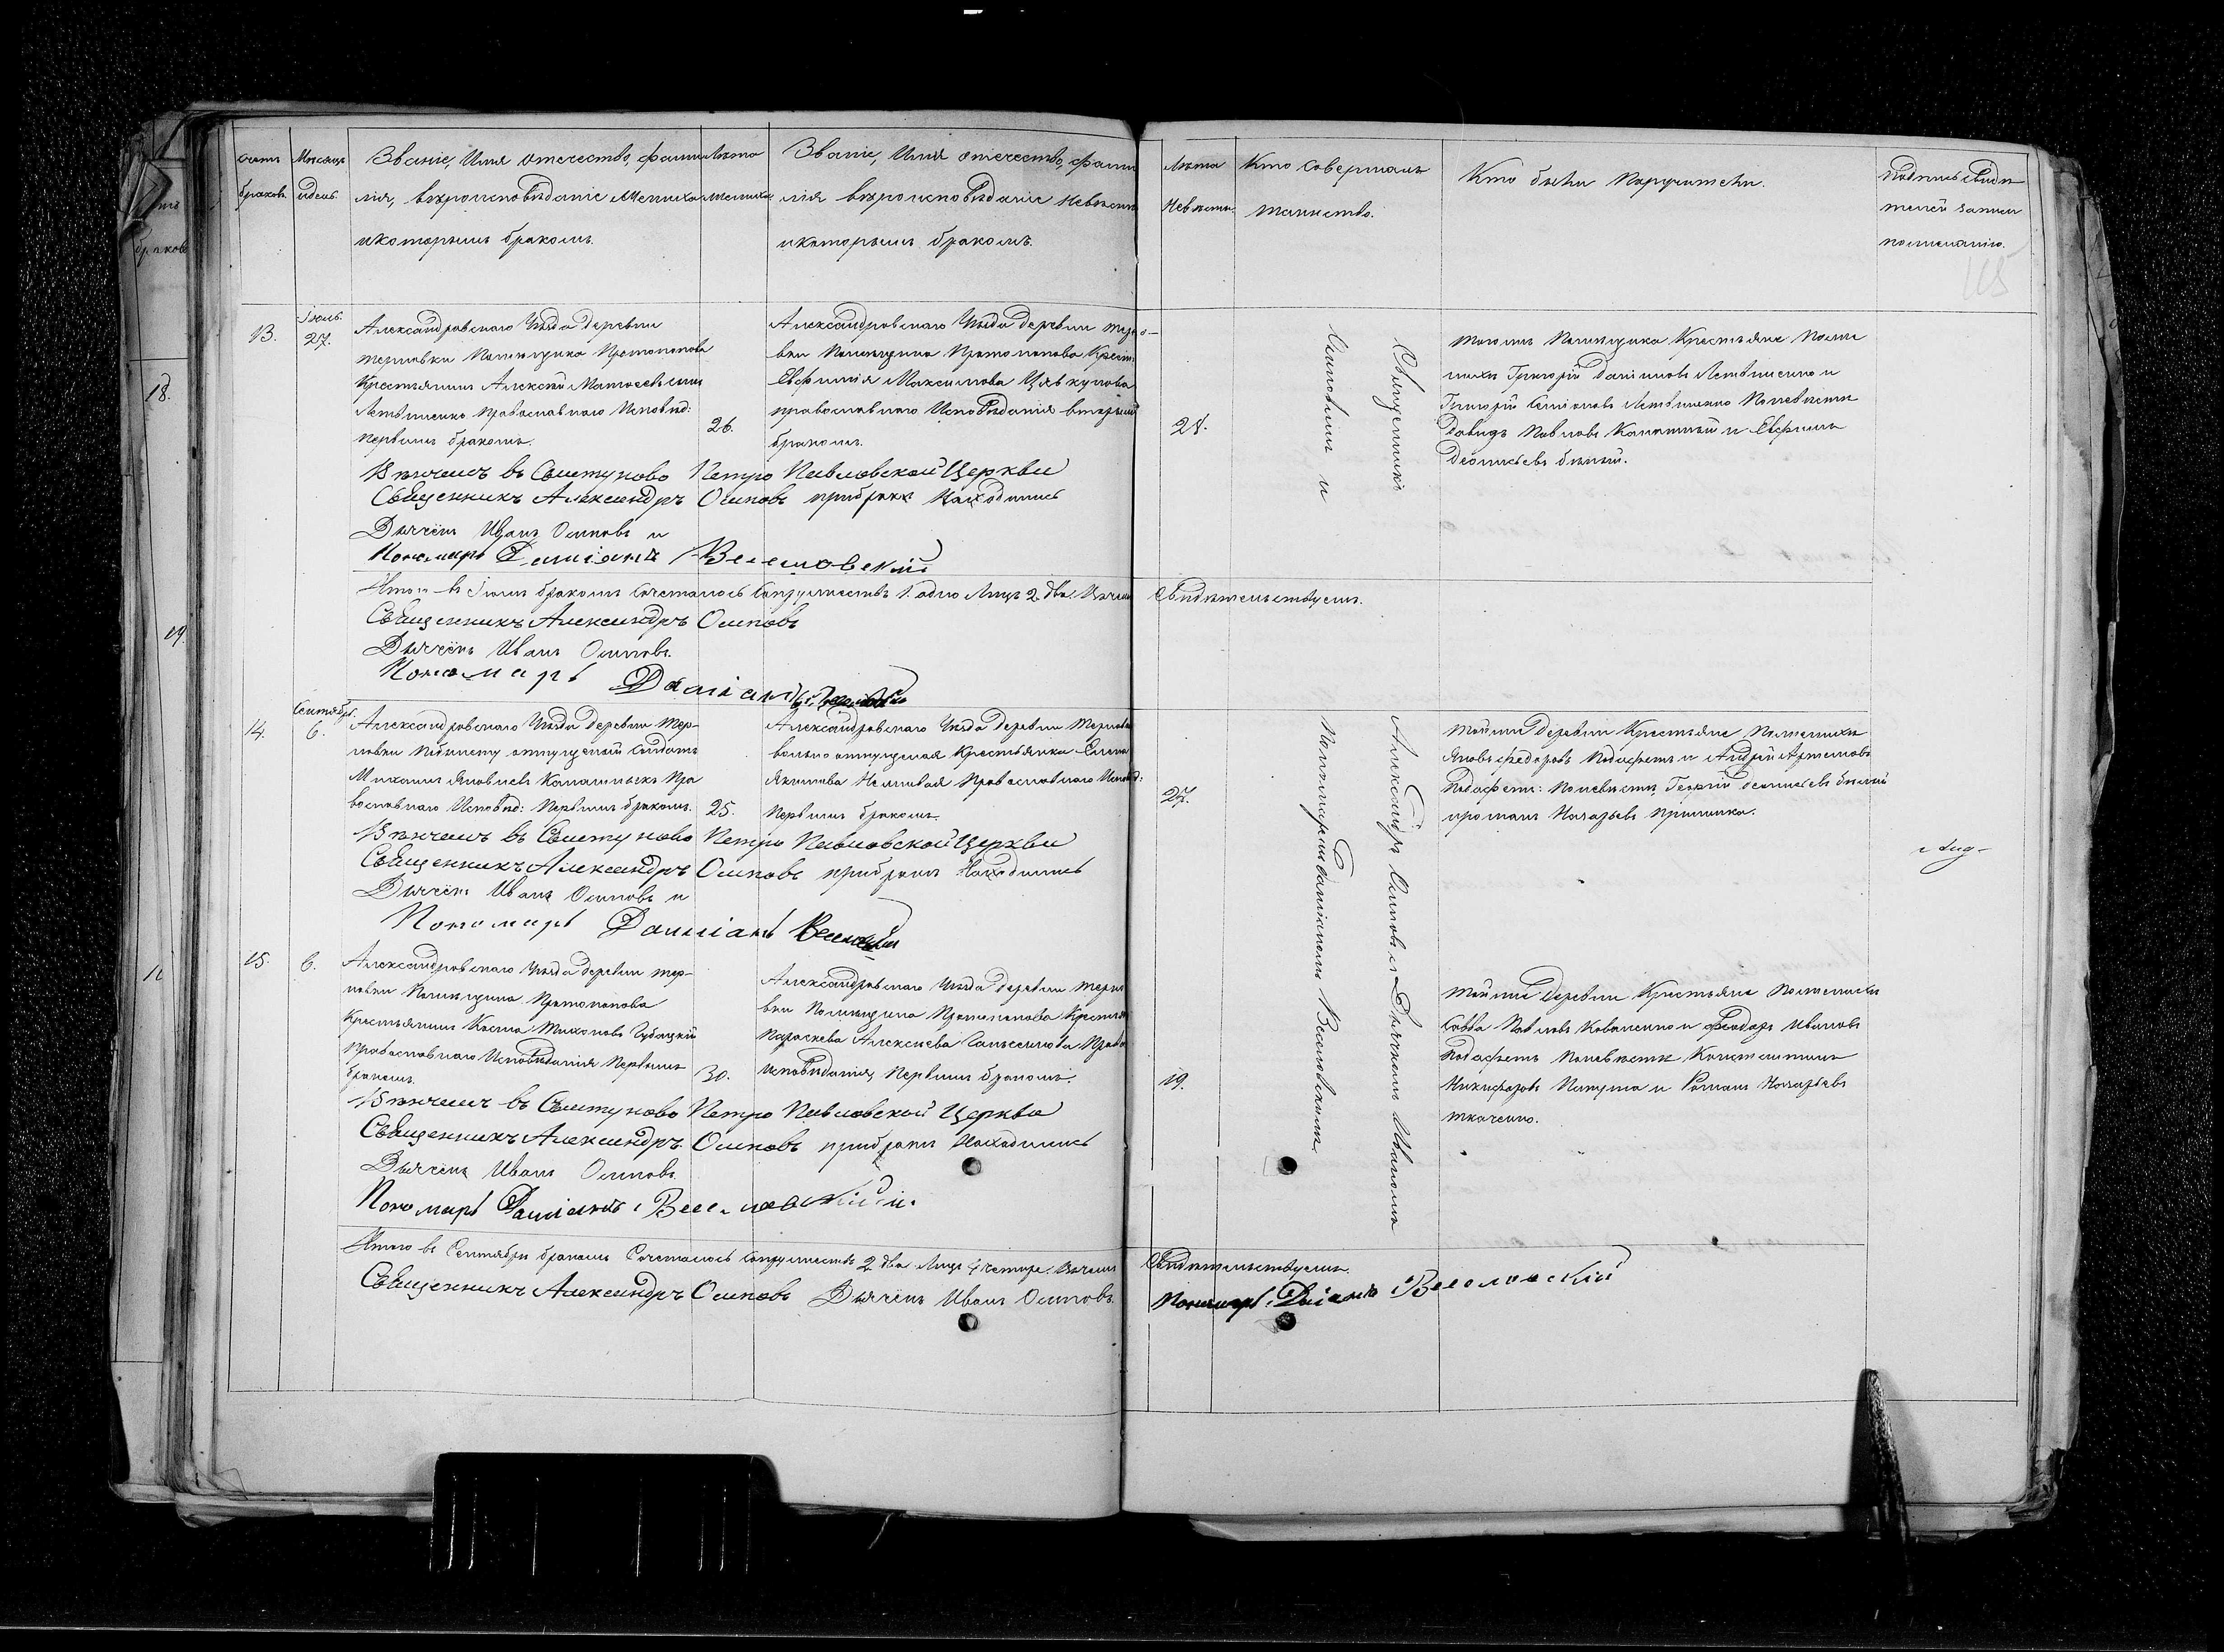 Счетъ
браковъ.
Месяцъ
идень.
Званіе, Имя отечество, фами
лія, вѣроисповѣданіе Жениха
икоторымъ бракомъ.
Лѣта
жениха
Званіе, Имя отечество, фами
лія вѣроисповѣданіе Невѣсты
икоторымъ бракомъ.
Лѣта
Невѣсты.
Кто Совершалъ
таинство.
Кто были Поручители.
Подпись свиди
телей записи
пожеланію.
105
13.
Іюль.
27.
Александровскаго Уѣзда деревни
терновки Помѣщика Протопопова
Крестьянинъ Алексѣй Матвѣевъ
Литвиненко православнаго Исповѣд:
первымъ бракомъ.
26.
Александровскаго Уѣзда деревни терно-
вки Помѣщика Протопопова Крест:
Евфимія Максимова
православнаго Исповѣданія вторымъ
бракомъ.
28.
Священникъ
Осиповымъ и
тогожъ Помѣщика Крестьяне Пожени
хи Григорій Даниловъ Литвиненко и
Григорій Семіоновъ Литвиненко Поневѣсти
Давидъ Павловъ и Евфимъ
Деонисіевъ бѣлый.
Вѣнчалъ въ Светуново Петро Павловской Церкви
Священникъ Александръ Осиповъ прибракѣ Находились
Дьячекъ Иванъ Осиповъ и
Пономарь Даміанъ Веселовскій
Итого въ Іюли бракомъ Сочеталось Супружествъ 1. одно Лицъ 2. два. Вчемъ Свидѣтельствуемъ.
Священникъ Александръ Осиповъ
Дьячекъ Иванъ Осиповъ.
Пономарь Даміанъ
14.
Сентябрь.
6.
Александровскаго Уѣзда деревни Тер-
новки отпущеный Солдатъ
Михаилъ Яковлевъ Пра
вославнаго Исповѣд: Первымъ бракомъ.
25.
Александровскаго Уѣзда деревни Терновки
вольно отпущеная Крестьянка
Якимова Православнаго Исповѣд:
Первымъ бракомъ.
27.
Александръ Осиповъ и Дьячкомъ Иваномъ
Пономаремъ Даміаномъ Веселовскимъ
тойже деревни Крестьяне Поженихи
Яковъ Федоровъ и Андрей Артемовъ
Поневѣсти, Георгій Деонисіевъ бѣлый
ироманъ Назарьевъ
Вѣнчалъ въ Светуново Петро Павловской Церкви
Священникъ Александръ Осиповъ прибракѣ Находились
Дьячекъ Иванъ Осиповъ и
Пономарь Даміанъ
15.
6.
Александровскаго Уѣзда деревни тер-
новки Помѣщика Протопопова
Крестьянинъ Косма Тихоновъ
православнаго Исповѣданія Первымъ
бракомъ.
30.
Александровскаго Уѣзда деревни терно
вки Помѣщика Протопопова Крестьян
Параскева Алексіева Право
Исповѣданія, Первымъ бракомъ.
19.
тойже деревни Крестьяне Поженихи
Савва Павловъ Коваленко и Феодоръ Ивановъ
Поневѣсти Константинъ
Никифоровъ и Романъ Назарьевъ
ткаченко.
Вѣнчалъ въ Светуново Петро Павловской Церкви
Священникъ Александръ Осиповъ прибракѣ Находились
Дьячекъ Иванъ Осиповъ.
Пономарь Даміанъ Веселовскій
Итого въ Сентябрѣ бракомъ Сочеталось Супружествъ 2. два Лицъ 4 четире. Вчемъ Свидѣтельствуемъ.
Священникъ Александръ Осиповъ Дьячекъ Иванъ Осиповъ.
Пономарь Даміанъ Веселовскій
18.
19